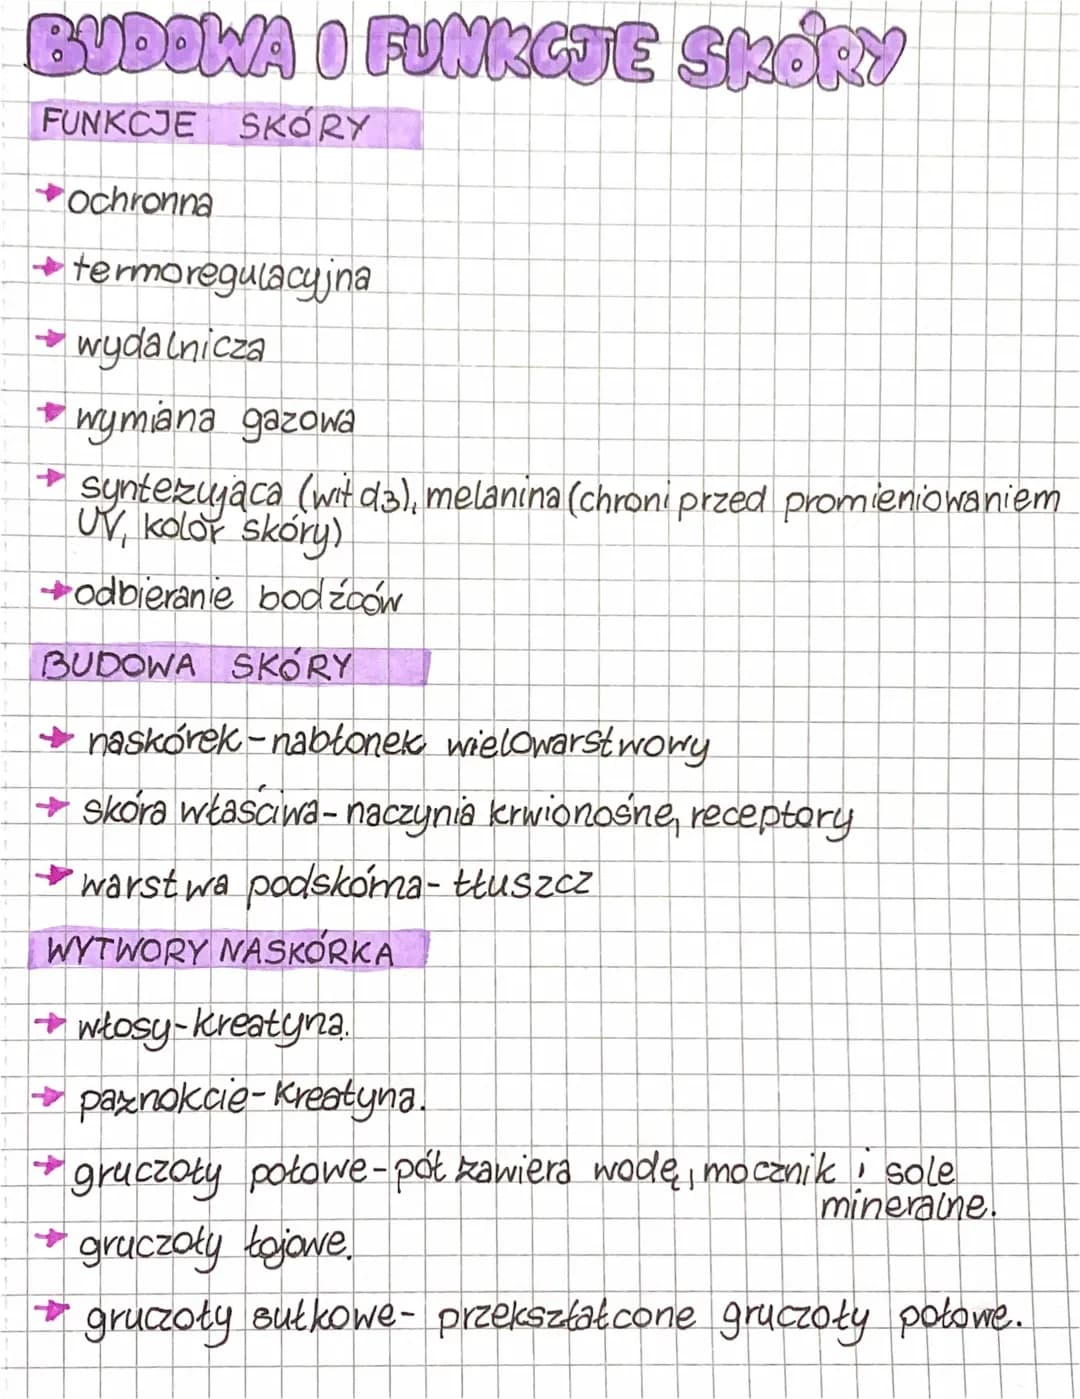 BUDOWA I FUNKCJE SKÓRY
FUNKCJE SKÓRY
ochronna
termoregulacyjna
wydalnicza
wymiana gazowa
syntezująca (wit d3), melanina (chroni przed promieniowaniem
UV, kolor skóry)
odbieranie bodźców
BUDOWA SKÓRY
naskórek - nabłonek wielowarstwowy
skóra właściwa - naczynia krwionośne, receptory
warstwa podskórna - tłuszcz
WYTWORY NASKÓRKA
włosy - kreatyna.
paznokcie - kreatyna.
gruczoły potowe - pot zawiera wodę, mocznik i sole
mineralne.
gruczoły łojowe.
gruczoły sutkowe - przekształcone gruczoły potowe.